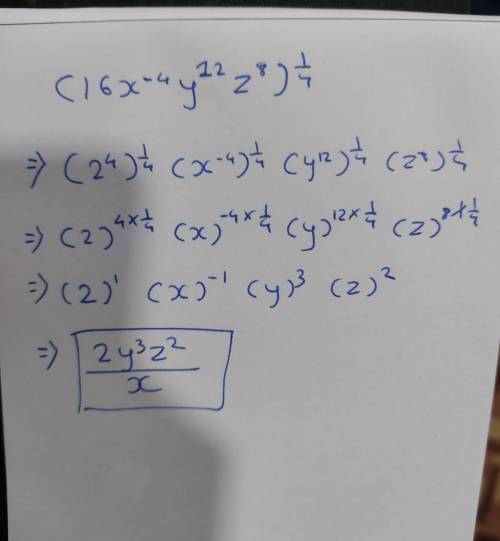 (16x⁻⁴ y¹² z⁸)^¼
⇒ (2⁴)^¼ (x⁻⁴)^¼ (y¹²)^¼ (z⁸)^¼
⇒ (2)^(4×¼) (x)^(-4×¼) (y)^(12×¼) (z)^(8×¼)
⇒ (2)¹ (x)⁻¹ (y)³ (z)²
⇒ 2y³z²/x